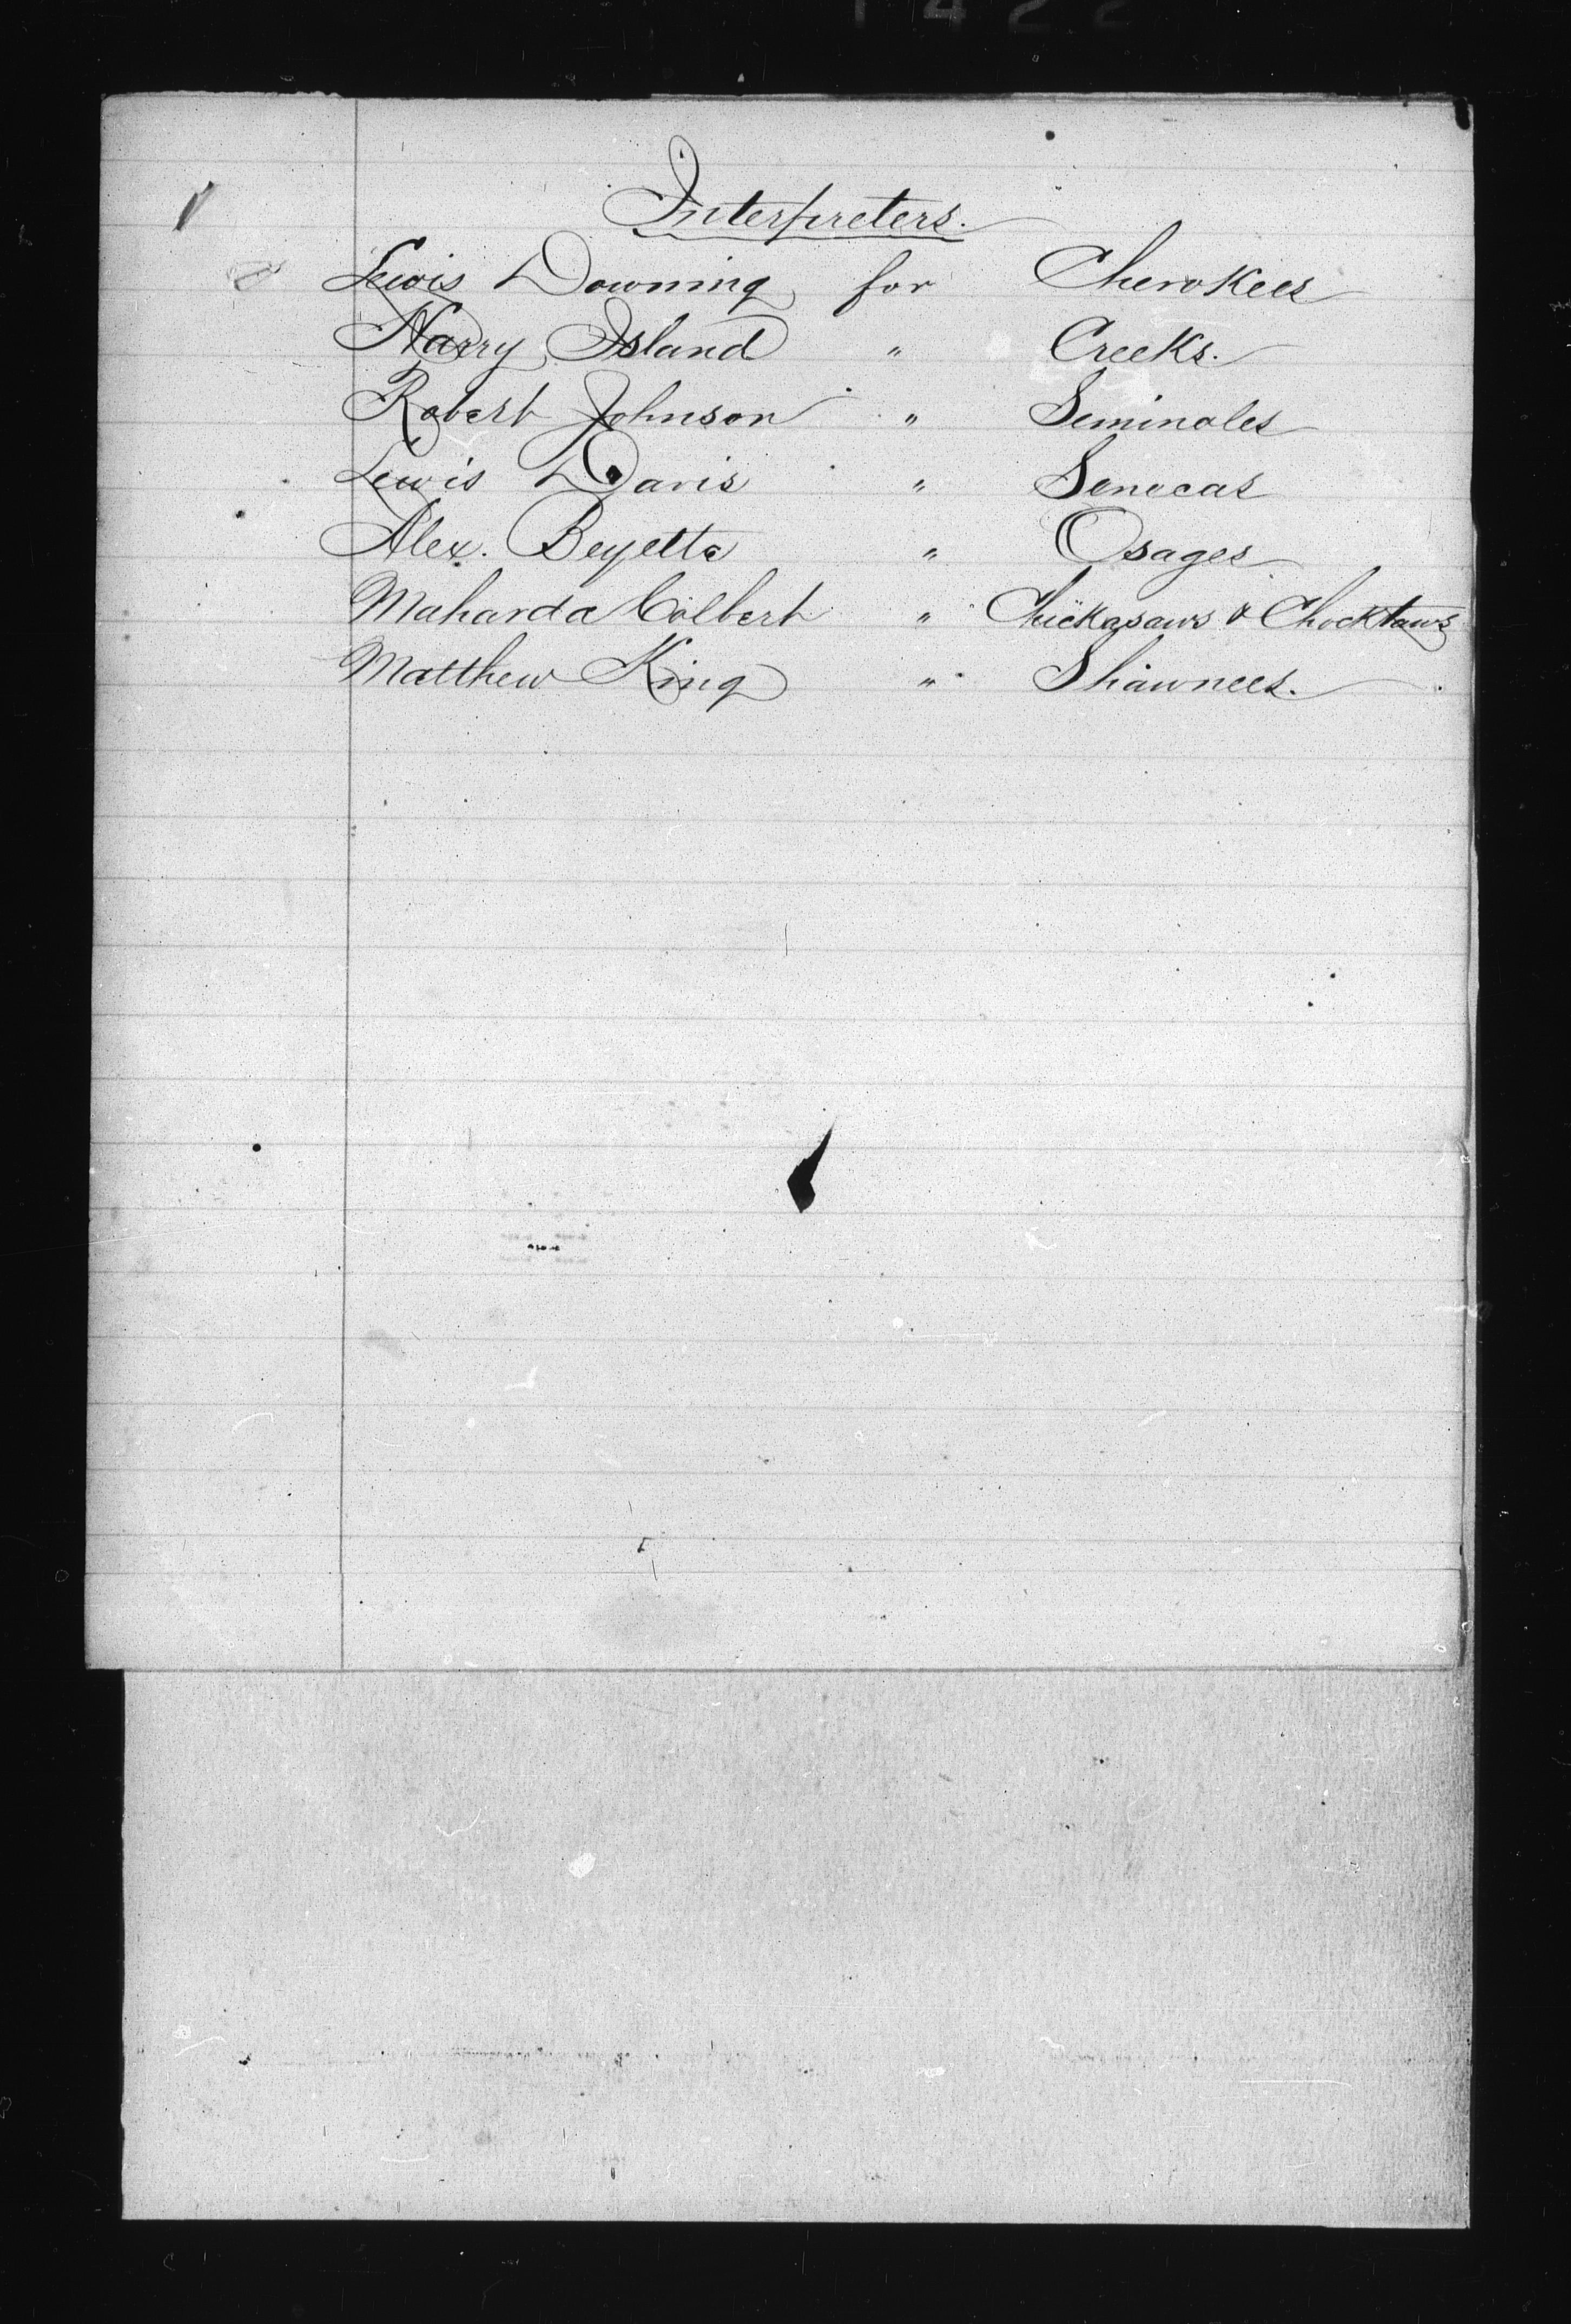 Interpreters.
Lewis Downing for Cherokees
Harry Island " Creeks.
Robert Johnson " Seminoles
Lewis Davis " Senecas
Alex. Beyette " Osages
Maharda Colbert " Chickasaws & Chocktaws
Matthew King " Shawnees.